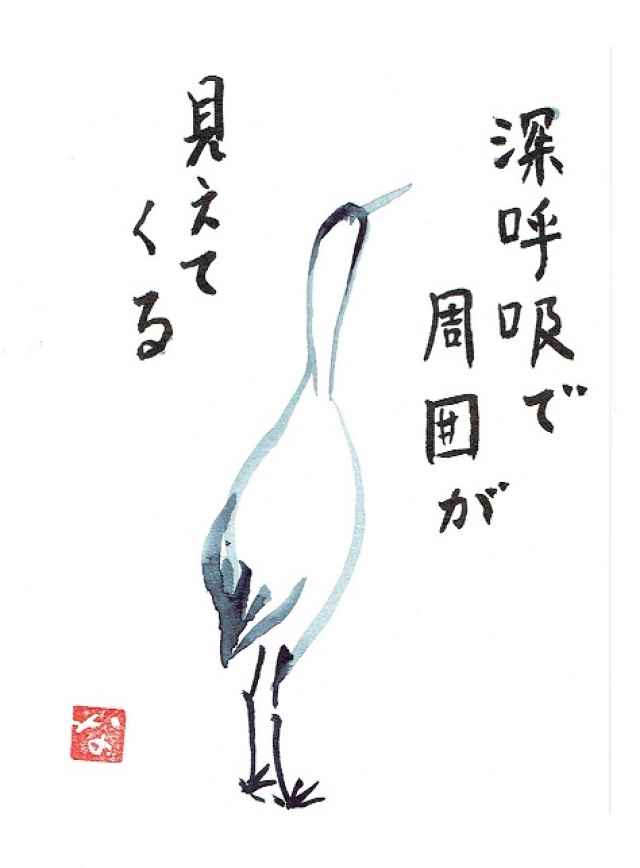 深呼吸で
周囲が
見えて
くる